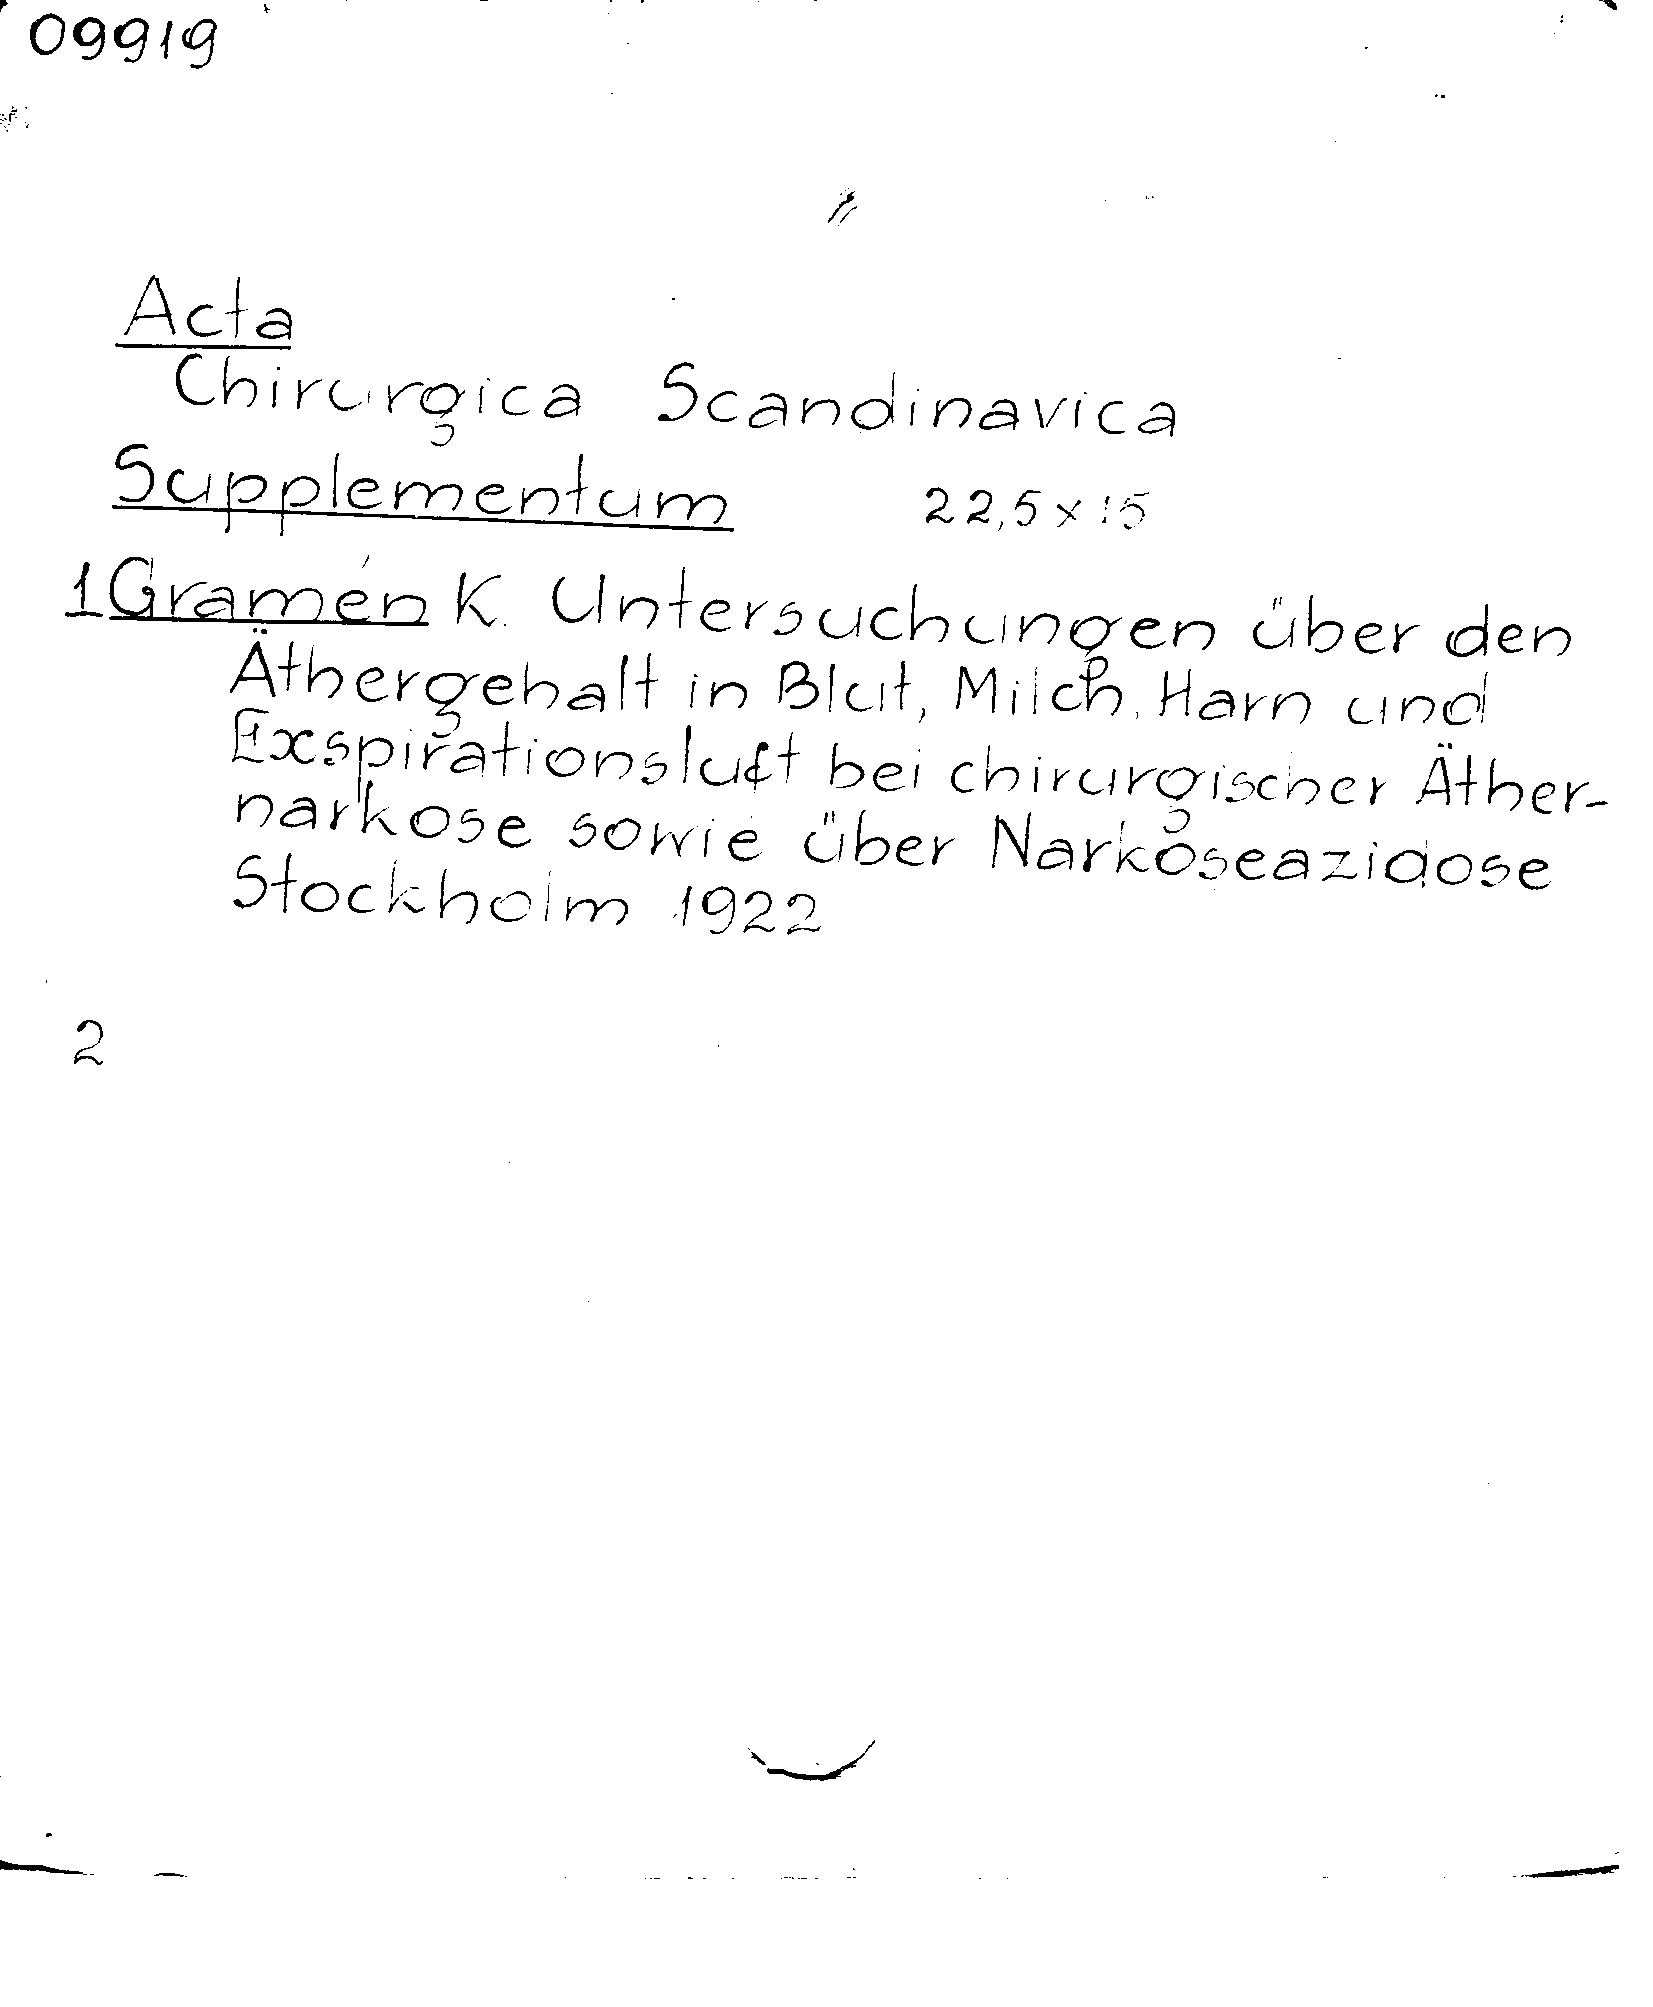 09919
Acta
Chirurgica Scandinavica
Supplementum 22,5 x 15
1 Gramén K. Untersuchungen über den
Äthergehalt in Blut, Milch, Harn und
Exspirationsluft bei chirurgischer Äther-
narkose sowie über Narkoseazidose
Stockholm 1922
2